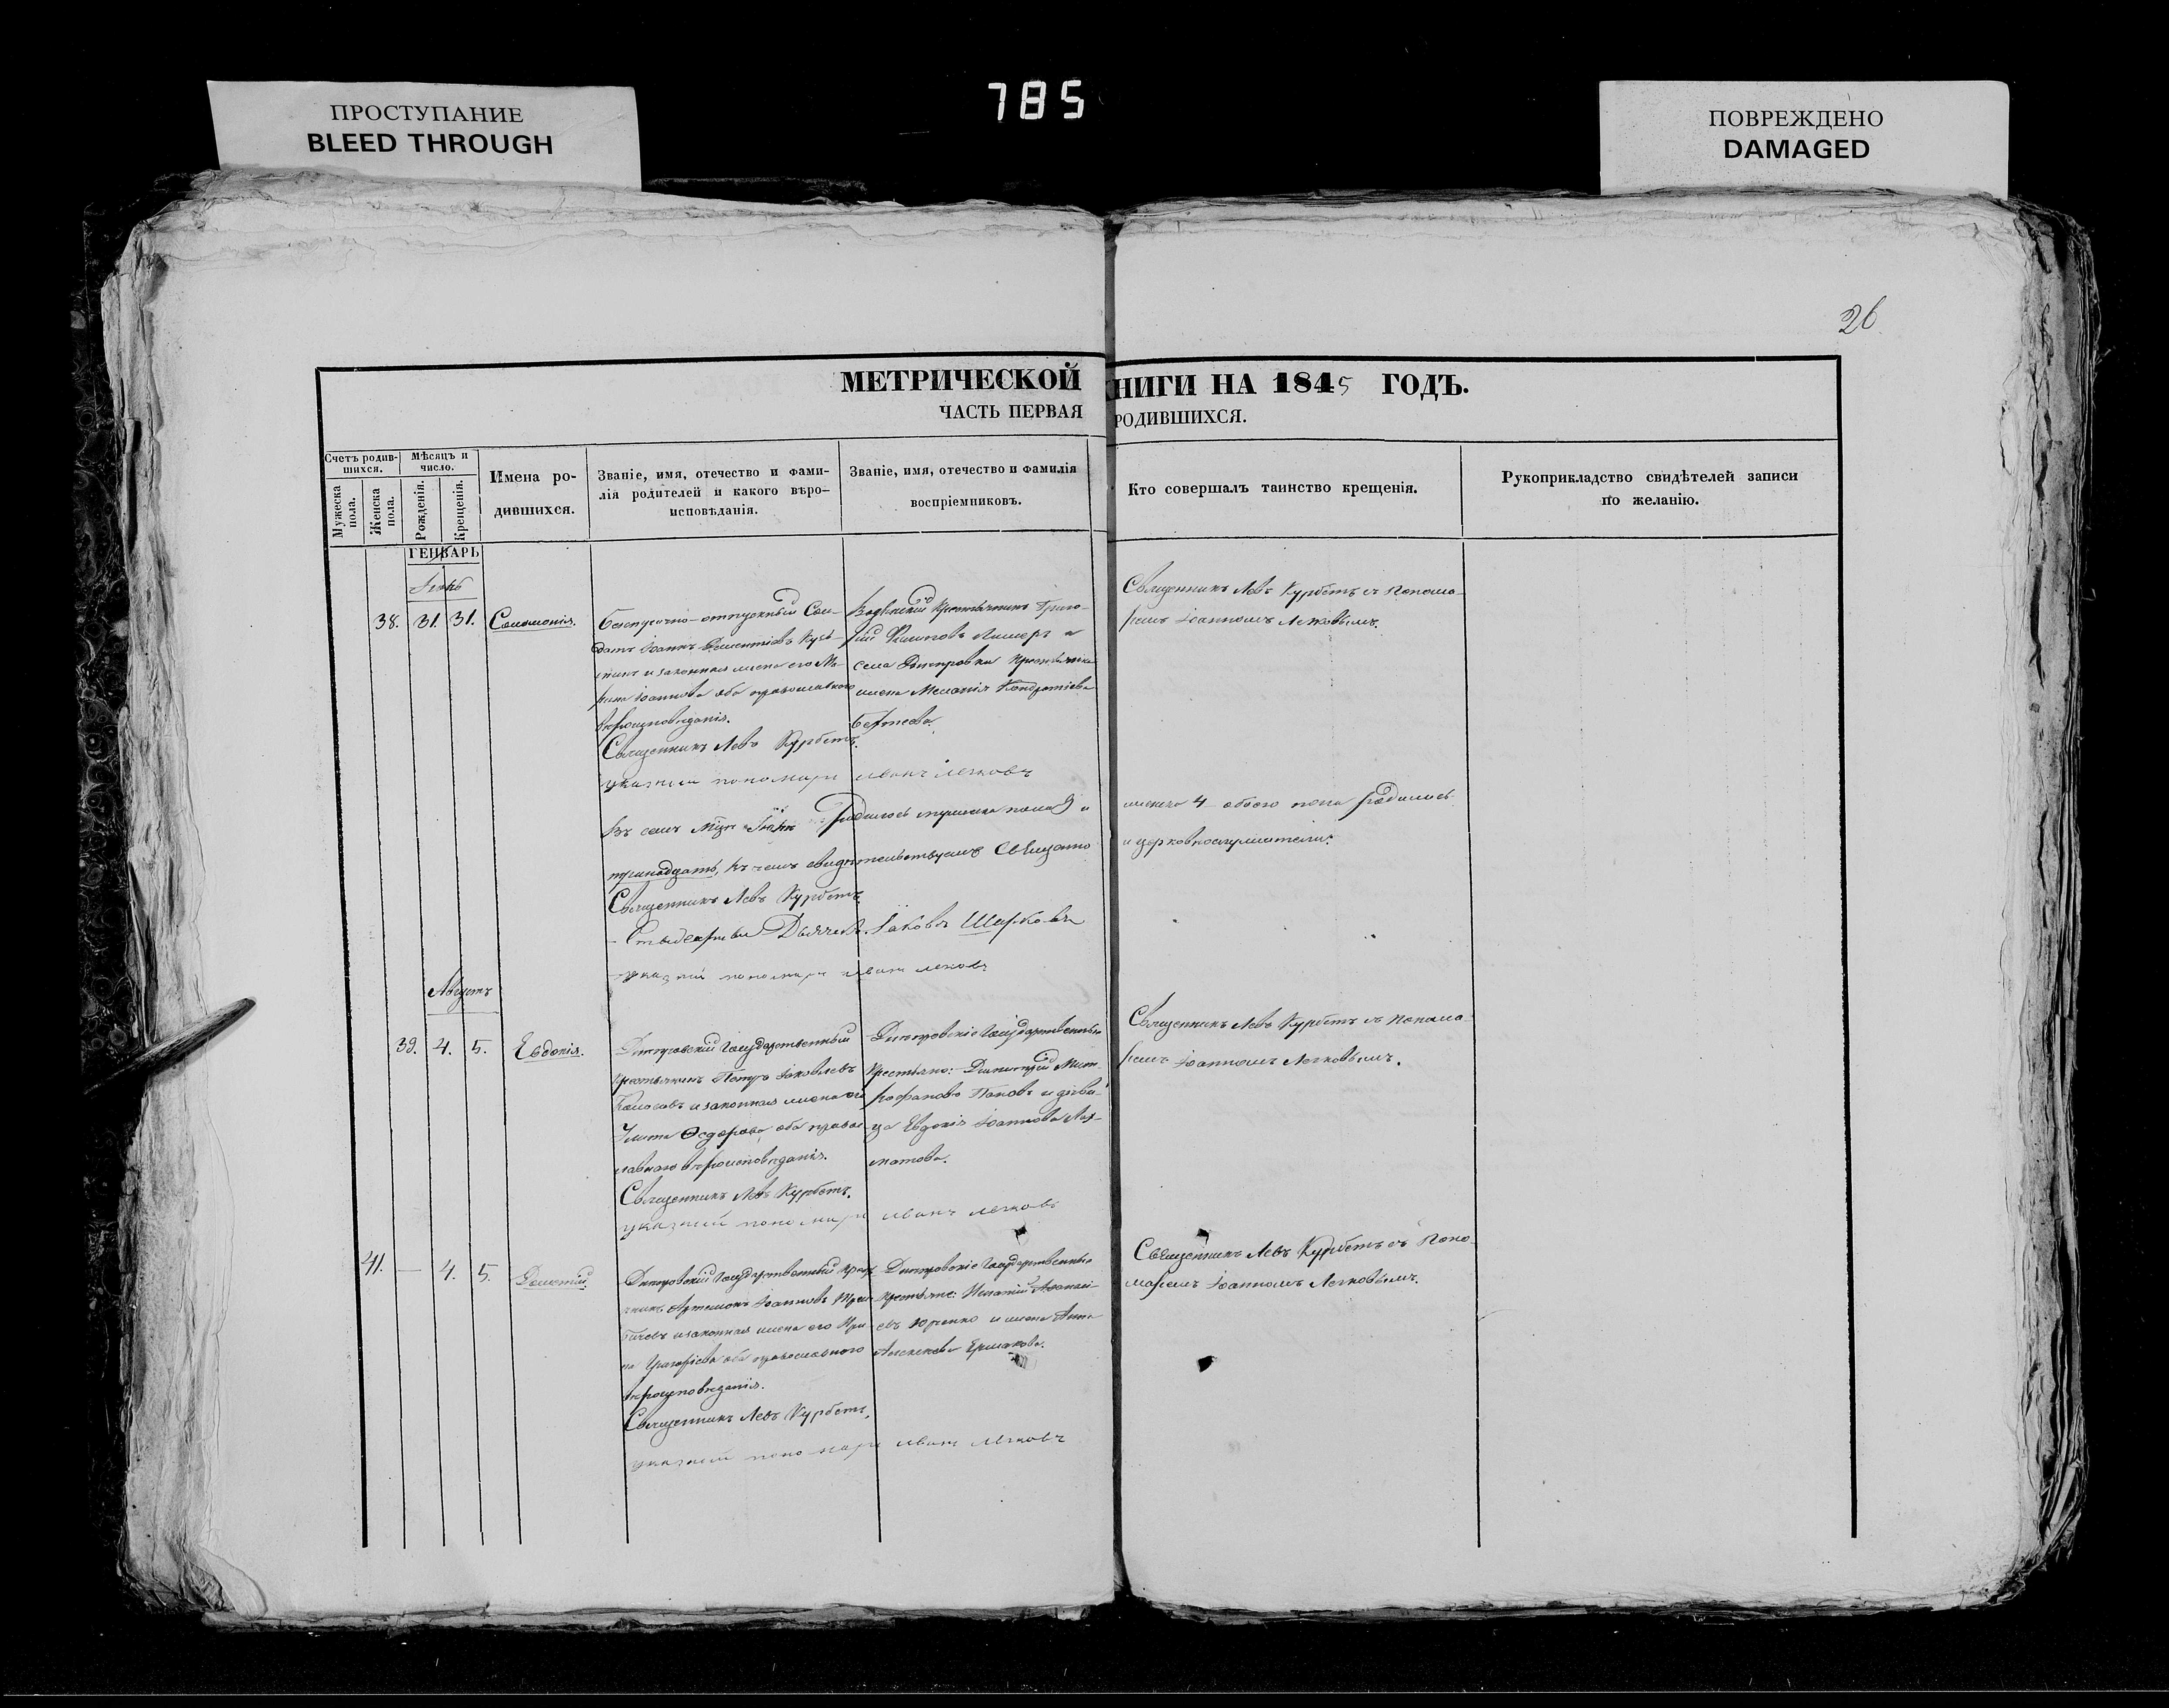 785
ПРОСТУПАНИЕ
BLEED THROUGH
ПОВРЕЖДЕНО
DAMAGED
26
МЕТРИЧЕСКОЙ КНИГИ НА 1845 ГОДЪ.
ЧАСТЬ ПЕРВАЯ РОДИВШИХСЯ.
Счетъ родив-
шихся.
Мужеска
пола.
Женска
пола.
Мѣсяцъ и
число.
Рожденія.
Крещенія.
Имена ро-
дившихся.
Званіе, имя, отечество и фами-
лія родителей и какого вѣро-
исповѣданія.
Званіе, имя, отечество и фамилія
воспріемниковъ.
Кто совершалъ таинство крещенія.
Рукоприкладство свидѣтелей записи
по желанію.
ГЕНВАРЬ
38. 31. 31. Соломонія.
Безсрочно-отпускный Сол-
датъ Іоаннъ
и законная жена его Ма-
Іоаннова оба православного
вѣроисповѣданія.
Священникъ Левъ Курбетъ.
указный пономарь иванъ лежковъ
крестьянинъ Григо-
рій Филиповъ и
села Днепровки крестьянина
жена Меланія Кондратіева
Священникъ Левъ Курбетъ съ Понома-
ремъ Іоанномъ Лежковымъ.
Въ семъ родилось мужеска пола 9 и
женска 4 обоего пола родилось
тринадцать, въ чемъ свидѣтельствуемъ Священно
и церковнослужители:
Священникъ Левъ Курбетъ
Іаковъ Шарковъ
указный пономарь иванъ лежковъ
Августъ
39. 4. 5. Евдокія.
Днепровскій Государственный
крестьянинъ Петръ Іаковлевъ
и законная жена его
Ѳедорова, оба право-
славного вѣроисповѣданія.
Священникъ Левъ Курбетъ.
указный пономарь иванъ лежковъ
Днепровскіе Государственные
Крестьяне: Димитрій Мит-
рофановъ Поповъ и дѣви-
ца Евдокія Іоаннова
Священникъ Левъ Курбетъ съ Понома-
ремъ Іоанномъ Лежковымъ.
41. — 4. 5. Дометій.
Днепровскій Государственный крест
Артемонъ Іоанновъ
и законная жена его Ири-
на Григорієва оба православного
вѣроисповѣданія.
Священникъ Левъ Курбетъ.
указный пономарь иванъ лежковъ
Днепровскіе Государственные
крестьяне: Игнатій
евъ Юрченко и жена Анна
Алексѣева Ермакова.
Священникъ Левъ Курбетъ съ Поно-
маремъ Іоанномъ Лежковымъ.